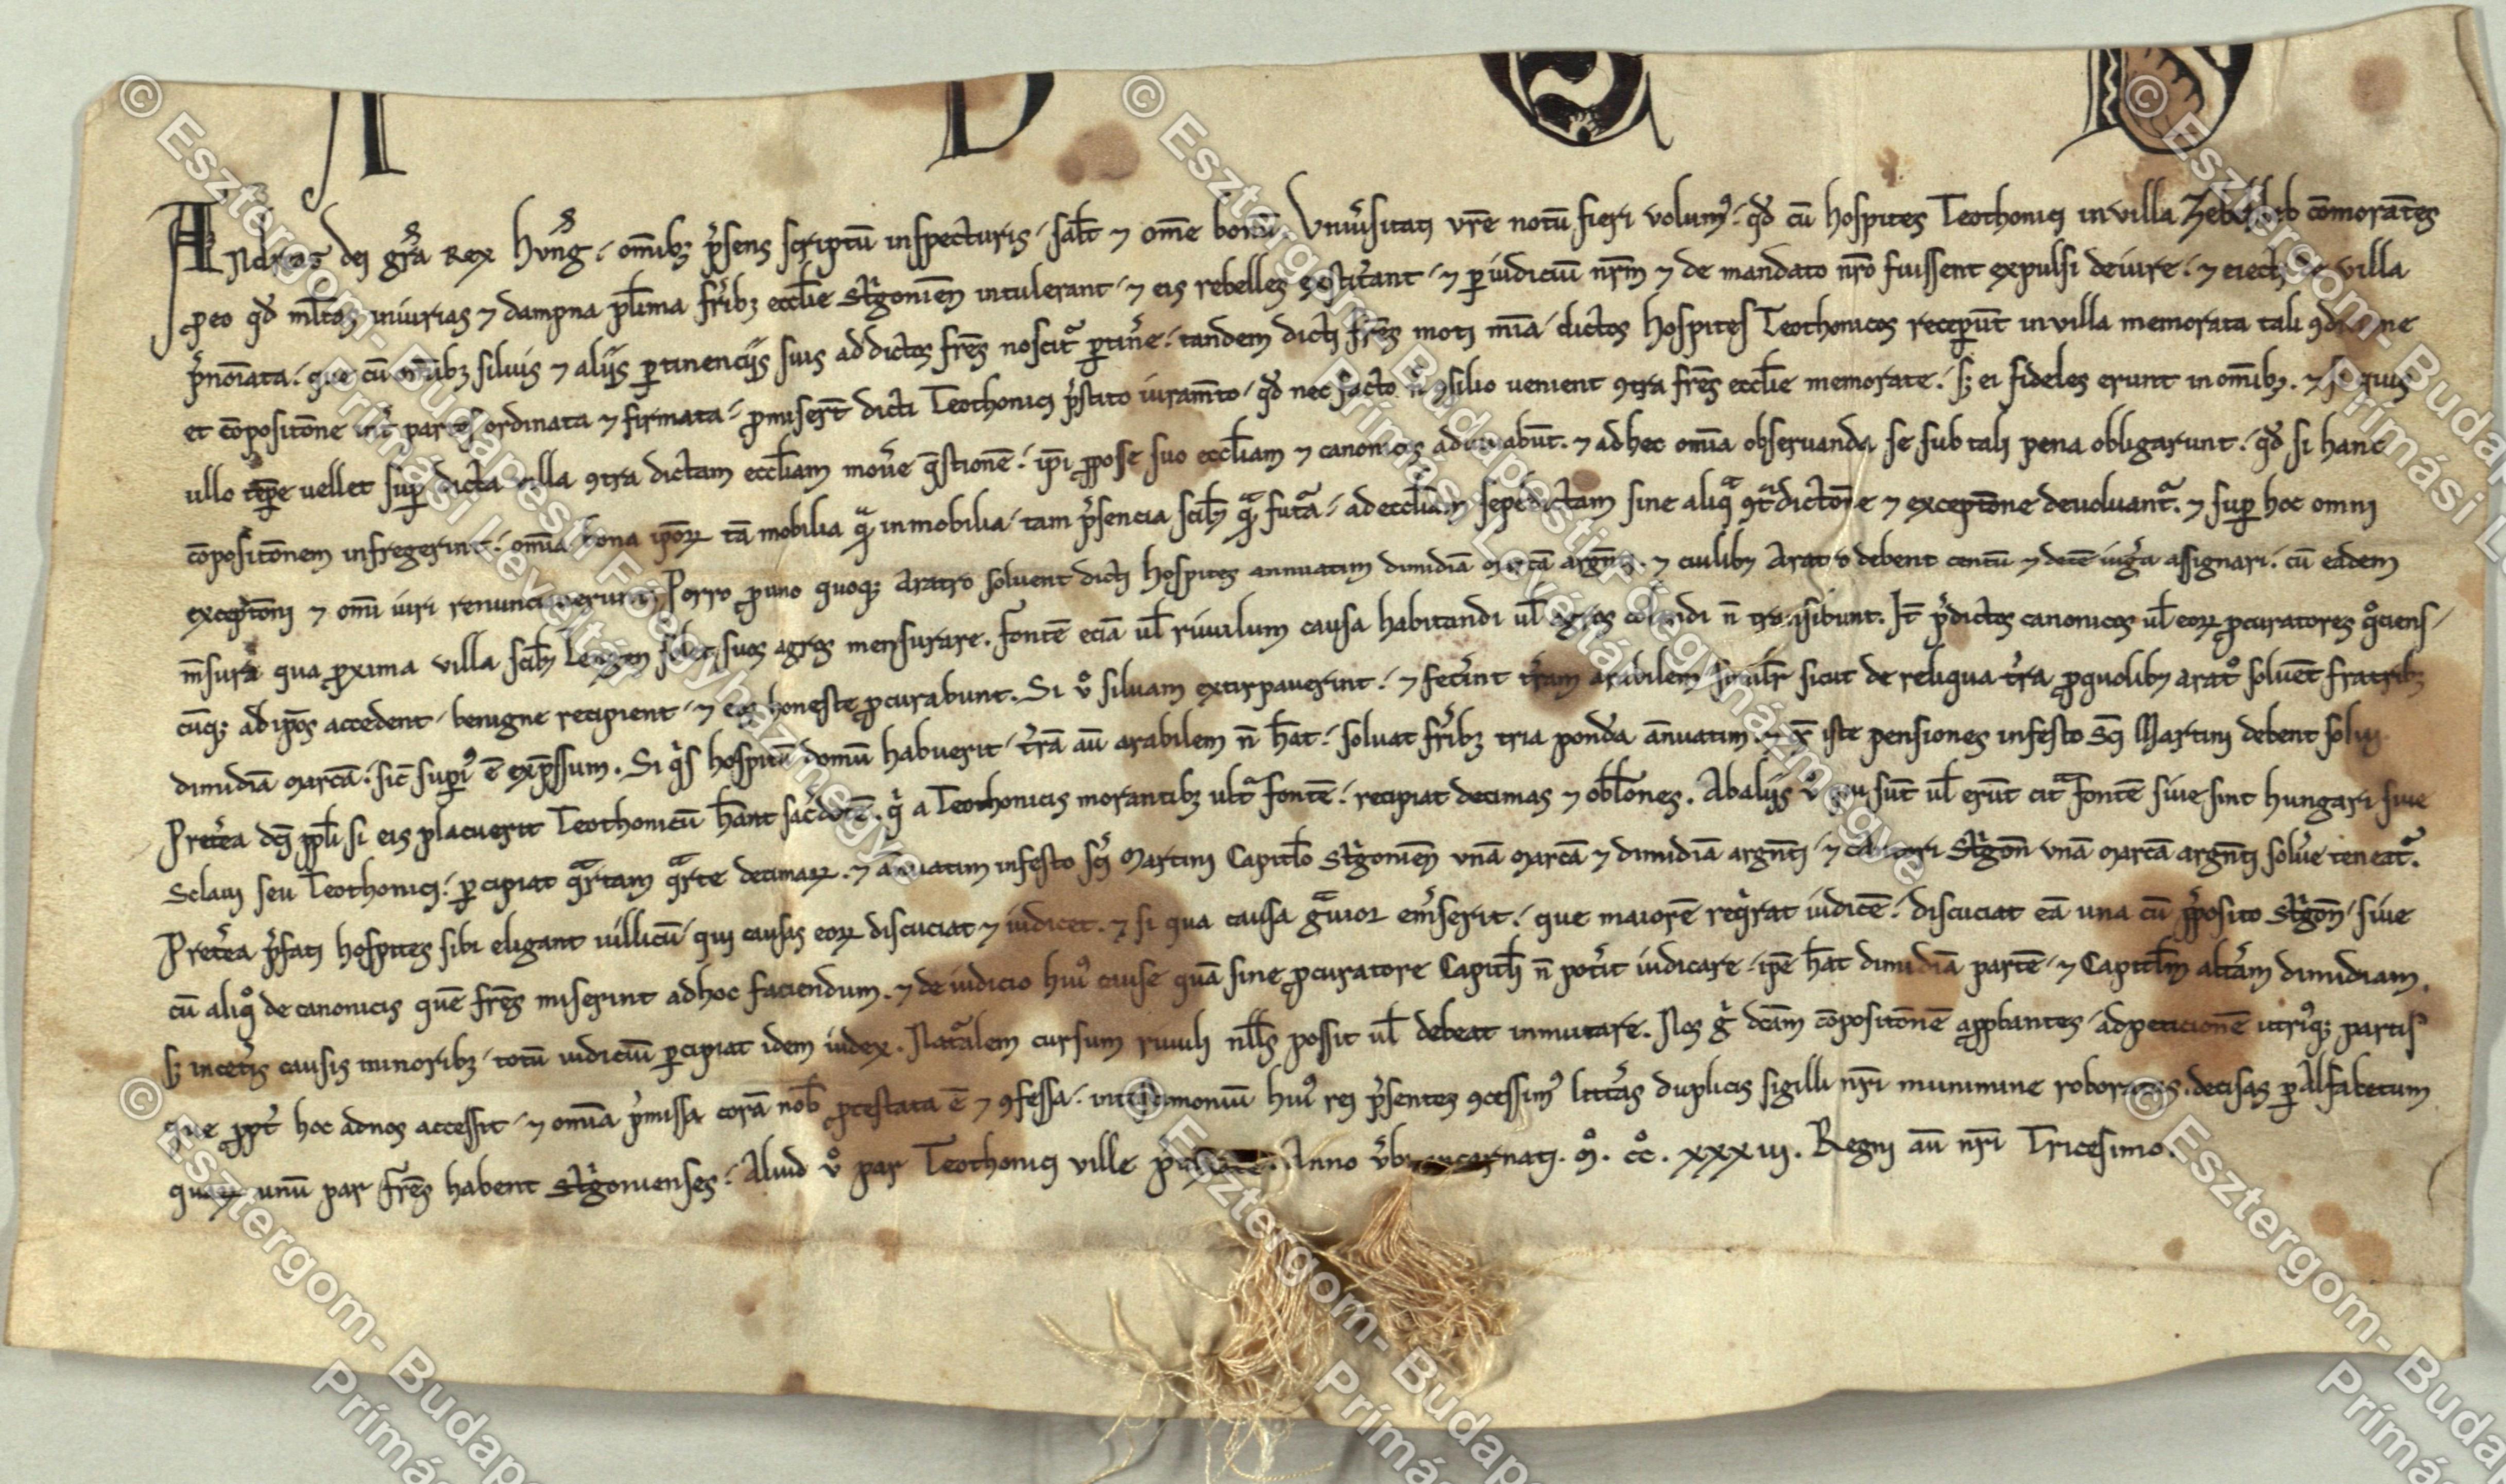 A B C D
Andreas dei gr̄a Rex Hvng̃ . omībꝫ p̄sens scriptū inspecturis . sal̄t ⁊ om̄e bonū . Vniu̓sitati vr̄e notū fieri volumꝰ . qd̓ cū hospites Teothonici in villa com̄orātes
ꝓ eo qd̓ ml̄tas iniurias ⁊ dampna pl̄ima fr̄ibꝫ eccl̄ie Str̓gonien̄ intulerant . ⁊ eis rebelles extit̓ant . ⁊ ꝑ iudiciū nr̄m ⁊ de mandato nr̄o fuissent expulsi de iure . ⁊ eiecti de villa
p̄noīata . que cū om̄ibꝫ siluis ⁊ alijs ꝑtinencijs suis ad dictos fr̄es noscit᷑ ꝑtin̓e . tandem dicti fr̄es moti mīa . dictos hospites Teothonicos receper̄t in villa memorata tali ꝯditione
et cōpositōne int̓ partes ordinata ⁊ firmata . ꝓmiser̄t dicti Teothonici p̄stito iuram̄to . qd̓ nec facto n̄ ꝯsilio uenient ꝯtra fr̄es eccl̄ie memorate . sꝫ ei fideles erunt in om̄ibꝫ . ⁊ si quis
ullo tēpe uellet suꝑ dicta villa ꝯtra dictam eccl̄iam mou̓e q̄stionē . ip̄i ꝓ posse suo eccl̄iam ⁊ canonicos adiuuabūt . ⁊ ad hec om̄ia obseruanda se sub tali pena obligarunt . qd̓ si hanc
cōpositōnem infregerint . om̄ia bona ip̄oꝝ tā mobilia qͣ inmobilia . tam p̄sencia scil̄ qͣ futᷓa . ad eccl̄iam sepedictam sine aliqͣ ꝯtᷓdictōe ⁊ exceptōne deuoluant᷑ . ⁊ suꝑ hoc omni
exceptōni ⁊ om̄i iuri renunciauerunt . Porro ꝓ uno quoqꝫ aratro soluent dicti hospites annuatim dimidiā marcā arḡnti . ⁊ cuilibꝫ aratro debent centū ⁊ decē iug̓a assignari . cū eadem
m̄sura qua ꝓxima villa scil̄ solet suos agros mensurare . fontē eciā ul̄ riuulum causa habitandi ul̄ agros colendi n̄ transibunt . It̄ p̄dictos canonicos ul̄ eoꝝ ꝓcuratores qͦciens-
cūqꝫ ad ip̄os accedent . benigne recipient . ⁊ eos honeste ꝓcurabunt . Si vͦ siluam extirpauerint . ⁊ fec̓int tr̄am arabilem . simil̄r sicut de reliqua tr̄a ꝓ quolibꝫ aratͦ soluēt fratribꝫ
dimidiā marcā . sic̄ supiꝰ ē exp̄ssum . Si qͥs hospitū domū habuerit . tr̄rā aū arabilem n̄ h̄at . soluat fr̄ibꝫ tria pond̓a annuatim . ⁊ iste pensiones in festo Sc̄i Martini debent solui
Pret̓ea dc̄i ppl̄i si eis placuerit Teothonicū h̄ant sac̓dotē . qͥ a Teothonicis morantibꝫ ult̓ fontē . recipiat decimas ⁊ obl̄ones . Ab alijs vͦ qui sūt ul̄ erūt citᷓ fontē siue sint Hungari siue
Sclaui seu Teothonici . ꝑcipiat qͣrtam qͣrte decimaꝝ . ⁊ annuatim in festo sc̄i Martini Capitl̄o Str̓gonien̄ vnā marcā ⁊ dimidiā arḡnti . ⁊ Str̓gon̄ vnā marcā arḡnti solu̓e teneat᷑ .
Pret̓ea p̄fati hospites sibi eligant uillicū . qui causas eoꝝ discuciat ⁊ iudicet . ⁊ si qua causa gͣuior em̓serit . que maiorē reqͥrat iudicē . discuciat eā una cū p̄posito Str̓gon̄ . siue
cū aliqͦ de canonicis quē fr̄es miserint ad hoc faciendum . ⁊ de iudicio huiꝰ cause quā sine ꝓcuratore Capitl̄i n̄ pot̓it iudicare . ip̄e h̄at dimidiā partē . ⁊ Capitl̄m alt̓am dimidiam .
sꝫ in cet̓is causis minoribꝫ . totū iudiciū ꝑcipiat idem iudex . Natᷓalem cursum riuuli nll̄s possit ul̄ debeat inmutare . Nos gͥ dc̄am cōpositōnē app̄bantes . ad peticionē utriꝰqꝫ partis
que ꝓpt̓ hoc ad nos accessit . ⁊ om̄ia p̄missa corā nob̄ ꝓtestata ē ⁊ ꝯfessa . in testimoniū huiꝰ rei p̄sentes ꝯcessimꝰ litt̓as duplicis sigilli nr̄i munimine roboratas . decisas ꝑ alfabetum
quaꝝ unū par fr̄es habent Str̓gonienses . aliud vͦ par Teothonici ville . Anno v̄bi incarnati . mͦ . ccͦ . xxxiii . Regni aū nr̄i Tricesimo
© Esztergom-Budapesti Főegyházmegye
Prímási Levéltár